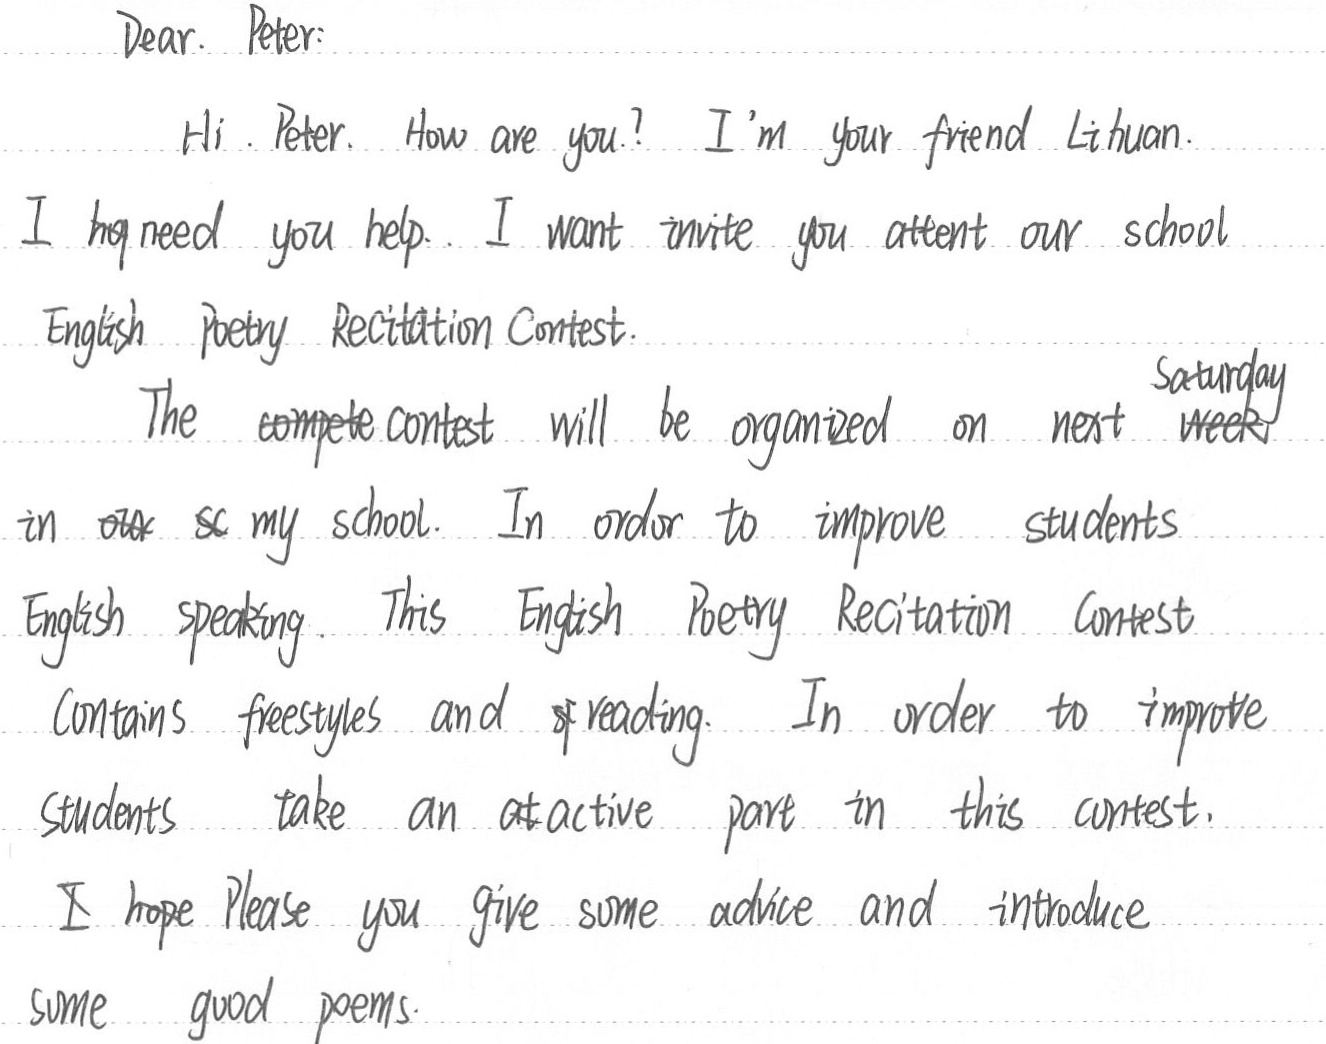 Dear. Peter:
Hi. Peter. How are you? I'm your friend Lihuan.
I need you help. I want invite you attent our school
English Poetry Recitation Contest.
The contest will be organized on next Saturday
in my school. In ordor to improve students
English speaking. This English Poetry Recitation Contest
Contains freestyles and reading. In order to improve
students take an active part in this contest.
I hope Please you give some advice and introduce
some good poems.